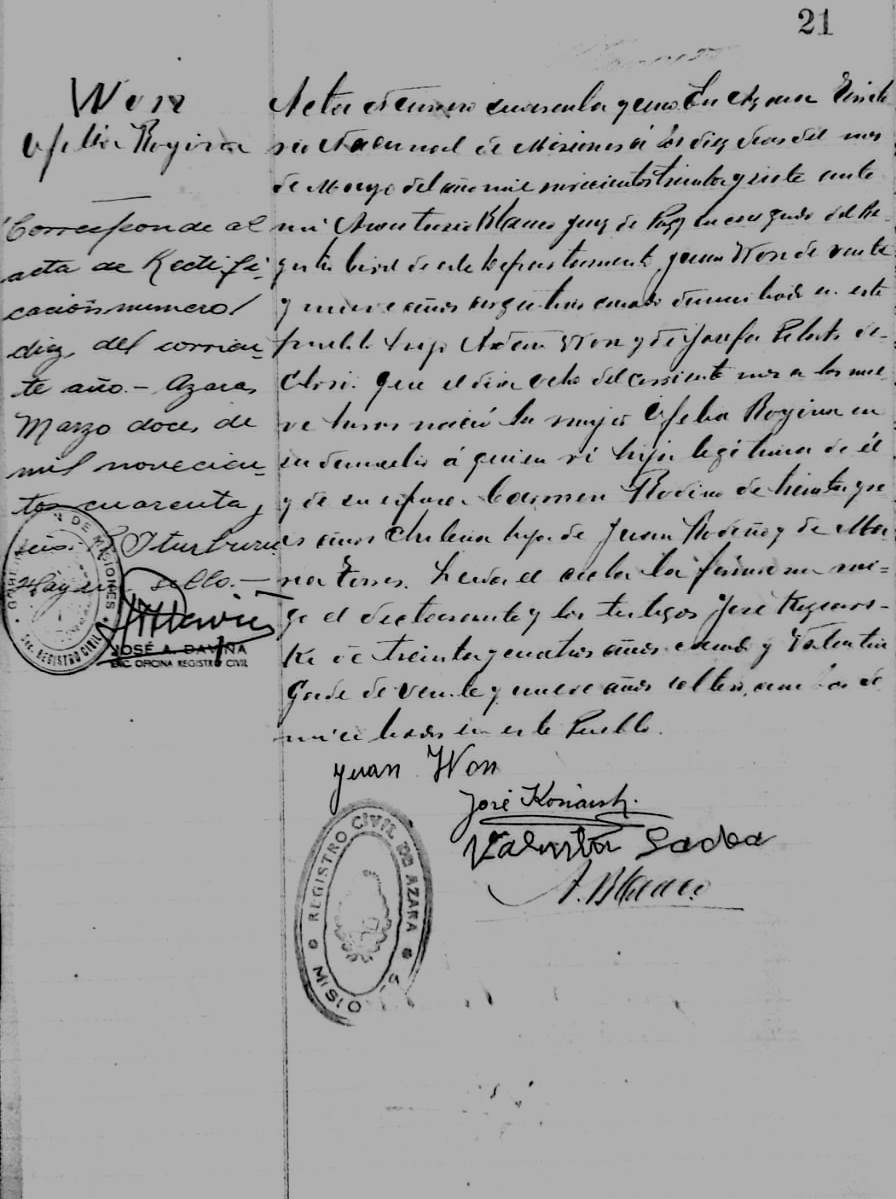 21
Won
Ofelia Rogina
Corresponde al
acta de Rectifi-
cación numero
diez, del corrien-
te año.- Azara,
Marzo doce, de
mil novecien-
tos cuarenta y
seis.
Hay un sello.-
JOSÉ A. DAVIÑA
ENC. OFICINA REGISTRO CIVIL
REGISTRO CIVIL
DE MISIONES
Acta número cuarenta y uno En Azara
Nacional de Misiones á los diez dias del mes
de Mayo del año mil novecientos treinta y siete ante
mi Blanco Juez de Paz encargado del Re-
gistro Civil de este Departamento, Juan Won de veinte
y nueve años casado domiciliado en este
pueblo hijo Won y de Josefa de-
claró: Que el dia ocho del corriente mes a las nue-
ve horas nació la mujer Ofelia Rogina en
su domicilio á quien vi hija legitima de él
y de su esposa Carmen de treinta y
años Chilena hija de Juan y de Ma-
ria Leida el acta la firman con mi-
go el declarante y los testigos José
de treinta y cuatro años casado y Valentin
de veinte y nueve años soltero, ambos do-
miciliados en este Pueblo.
Juan Won
José
Valentin
A. Blanco
REGISTRO CIVIL DE AZARA
MISIO